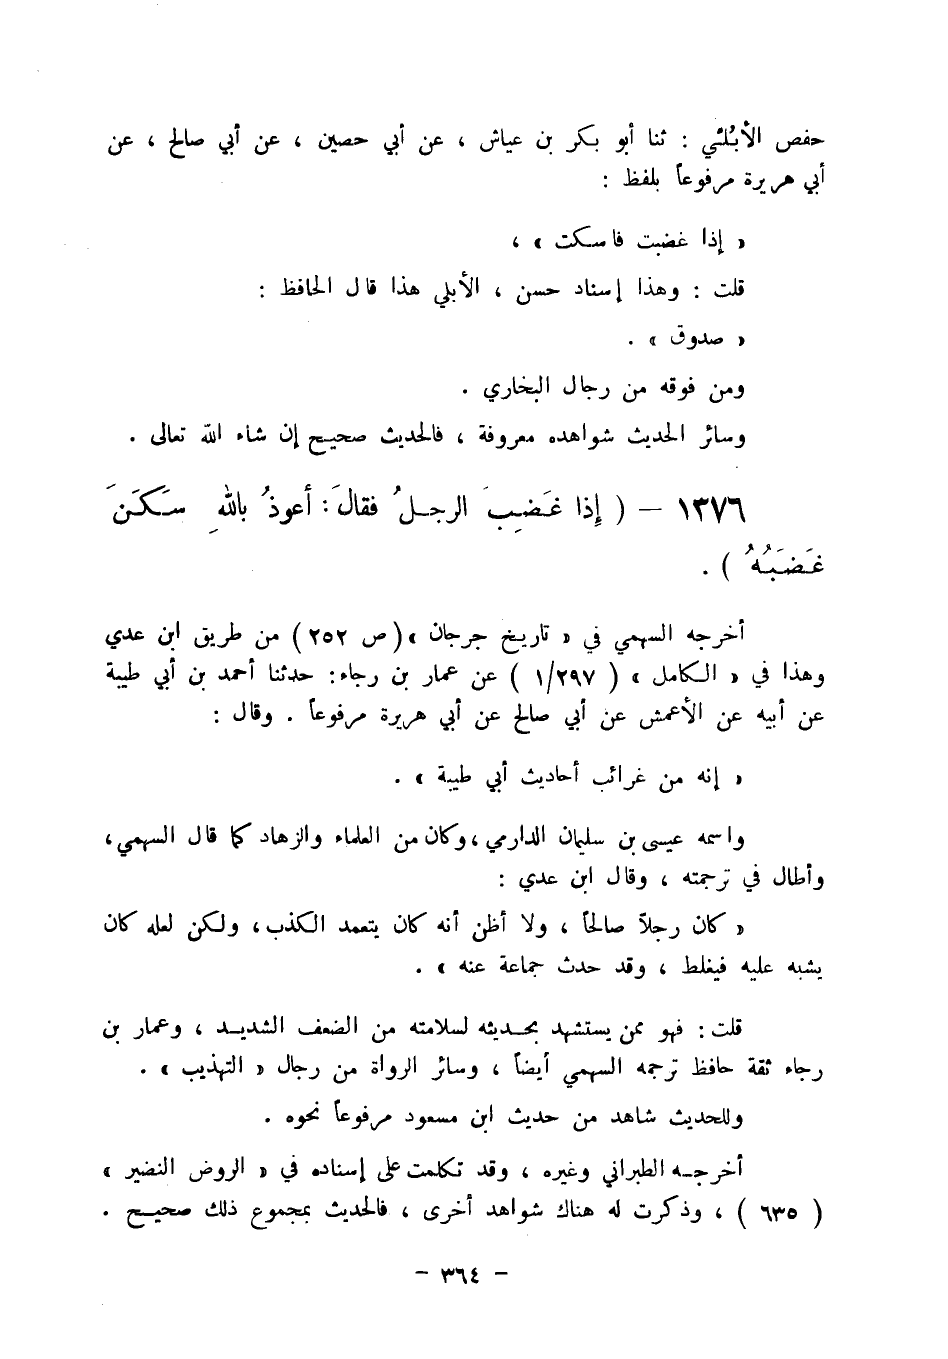 حفص الأبُلّي : ثنا أبو بكر بن عياش ، عن أبي حصين ، عن أبي صالح ، عن
أبي هريرة مرفوعاً بلفظ :
« إذا غضبت فاسكت » ،
قلت : وهذا إسناد حسن ، الأبلي هذا قال الحافظ :
« صدوق » .
ومن فوقه من رجال البخاري .
وسائر الحديث شواهده معروفة ، فالحديث صحيح إن شاء الله تعالى .
١٣٧٦ – ( إِذا غَضِبَ الرجلُ فقالَ : أعوذُ باللهِ سَكَنَ
غَضَبُهُ ) .
أخرجه السهمي في « تاريخ جرجان » (ص ٢٥٢) من طريق ابن عدي
وهذا في « الكامل » ( ١/٢٩٧ ) عن عمار بن رجاء : حدثنا أحمد بن أبي طيبة
عن أبيه عن الأعمش عن أبي صالح عن أبي هريرة مرفوعاً . وقال :
« إنه من غرائب أحاديث أبي طيبة » .
واسمه عيسى بن سليمان الدارمي ، وكان من العلماء والزهاد كما قال السهمي ،
وأطال في ترجمته ، وقال ابن عدي :
« كان رجلاً صالحاً ، ولا أظن أنه كان يتعمد الكذب ، ولكن لعله كان
يشبه عليه فيغلط ، وقد حدث جماعة عنه » .
قلت : فهو ممن يستشهد بحديثه لسلامته من الضعف الشديد ، وعمار بن
رجاء ثقة حافظ ترجمه السهمي أيضاً ، وسائر الرواة من رجال « التهذيب » .
وللحديث شاهد من حديث ابن مسعود مرفوعاً نحوه .
أخرجه الطبراني وغيره ، وقد تكلمت على إسناده في « الروض النضير »
( ٦٣٥ ) ، وذكرت له هناك شواهد أخرى ، فالحديث بمجموع ذلك صحيح .
– ٣٦٤ –